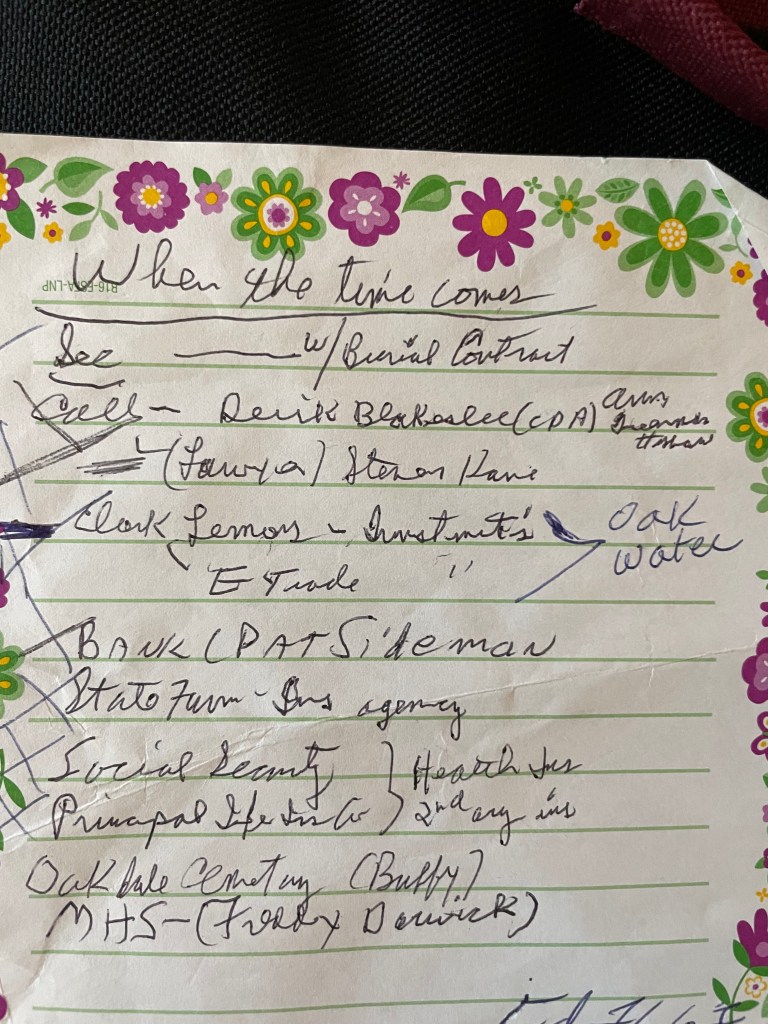 When the time comes
See ——— w/ Burial Contract
Call - Derik Blakeslee (CPA)
(Lawyer) Steven Kane
Clark Lemons - Investments Oak Water
E Trade "
BANK (PAT Sideman
State Farm - Ins agency
Social Security } Health Ins
Principal Life Ins Co } 2nd ary ins
Oakdale Cemetary (Buffy)
MHS - (Freddy Derwick)